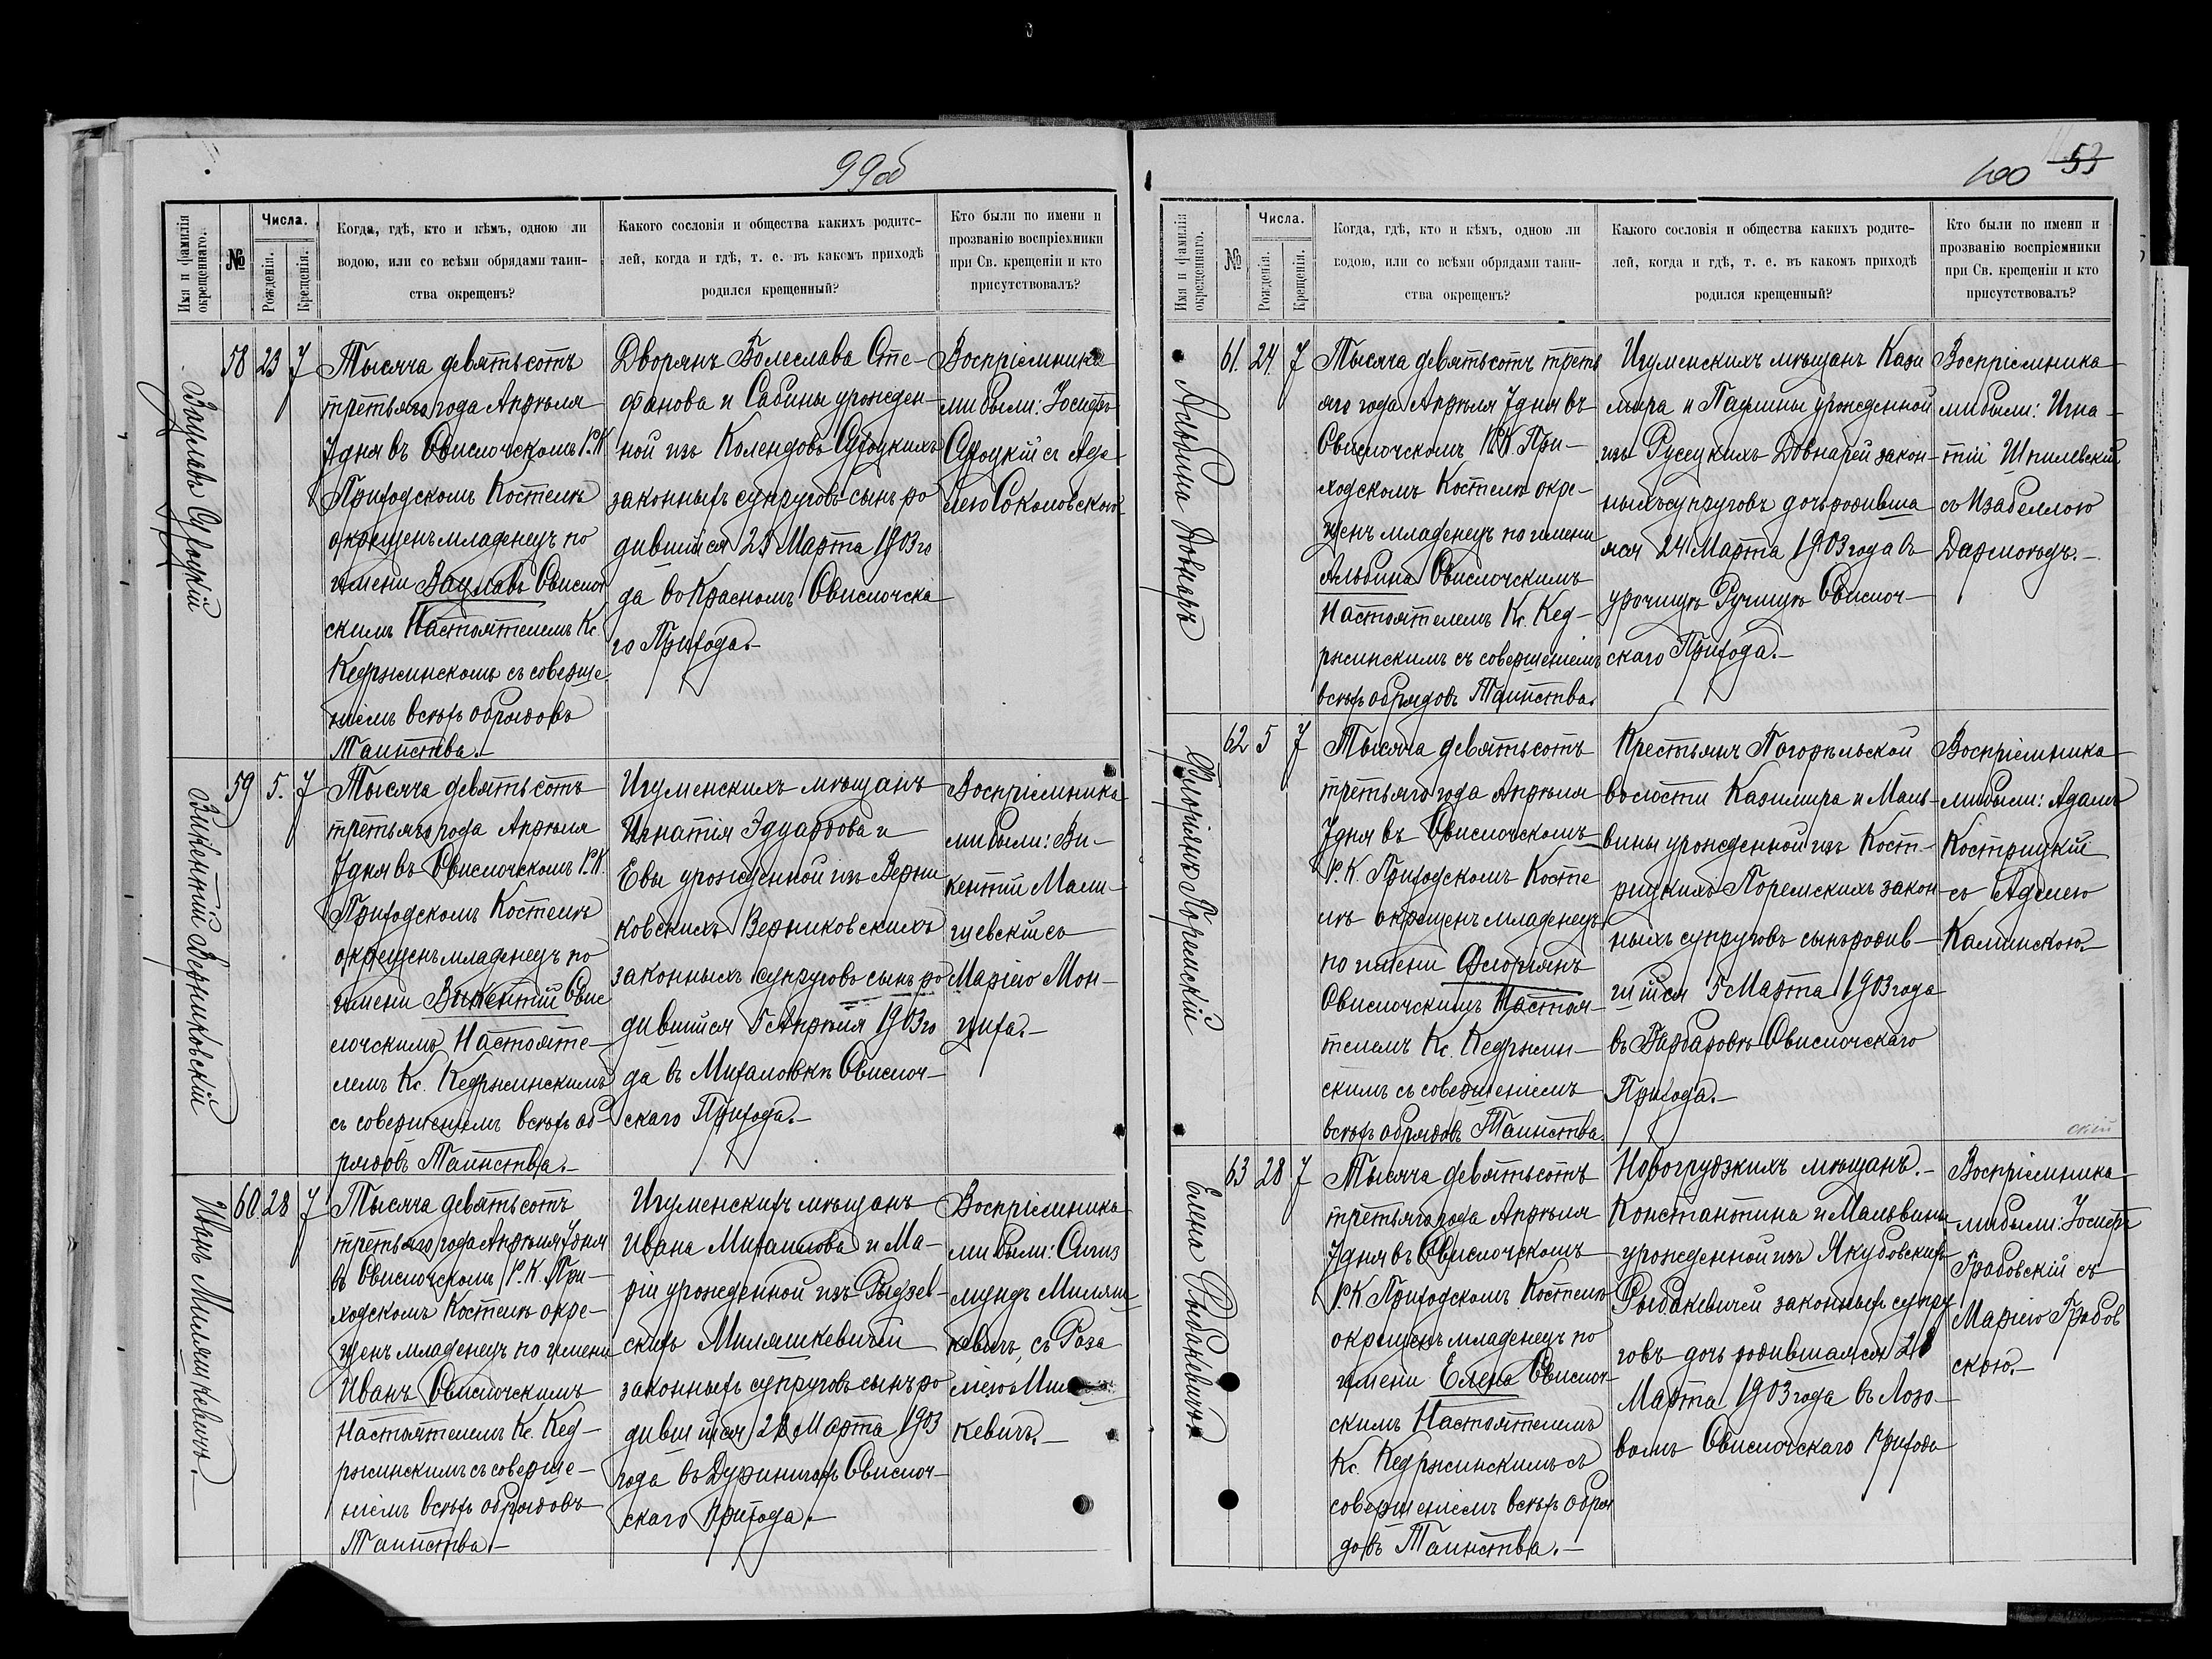 99об
Имя и фамилія окрещеннаго.
№
Числа.
Рожденія.
Крещенія.
Когда, гдѣ, кто и кѣмъ, одною ли
водою, или со всѣми обрядами таин-
ства окрещенъ?
Какого сословія и общества какихъ родите-
лей, когда и гдѣ, т. е. въ какомъ приходѣ
родился крещенный?
Кто были по имени и
прозванію воспріемники
при Св. крещеніи и кто
присутствовалъ?
58 23 7
Тысяча девятьсотъ
третьяго года Апрѣля
7 дня въ Свислочскомъ Р. К.
Приходскомъ Костелѣ
окрещенъ младенецъ по
имени Вацлавъ Свислоч
скимъ Настоятелемъ Кс.
Кедржинскомъ съ соверше
ніемъ всѣхъ обрядовъ
Таинства.—
Дворянъ Болеслава Сте-
фанова и Сабины урожден-
ной изъ Колендовъ
законныхъ супруговъ сынъ ро
дившійся 23 Марта 1903 го
да во Красномъ Свислочска
го Прихода.—
Воспріемника
ми были: Іосифъ
съ Аде
лею Соколовскою
Вацлавъ
59 5. 7
Тысяча девятьсотъ
третьяго года Апрѣля
7 дня въ Свислочскомъ Р. К.
Приходскомъ Костелѣ
окрещенъ младенецъ по
имени Викентій Свис
лочскимъ Настояте-
лемъ Кс. Кедржинскимъ
съ совершеніемъ всѣхъ об-
рядовъ Таинства.—
Игуменскихъ мѣщанъ
Игнатія Эдуардова и
Евы урожденной изъ Верни
ковскихъ Верниковскихъ
законныхъ супруговъ сынъ ро
дившійся 5 Апрѣля 1903 го
да въ Михаловкѣ Свислоч-
скаго Прихода.—
Воспріемника
ми были: Ви-
кентій Мали-
шевскій съ
Маріею Мон-
Викентій Верниковскій
60. 28 7
Тысяча девятьсотъ
третьяго года Апрѣля 7 дня
въ Свислочскомъ Р. К. При-
ходскомъ Костелѣ окре-
щенъ младенецъ по имени
Иванъ Свислочскимъ
Настоятелемъ Кс. Кед-
ржинскимъ съ соверше-
ніемъ всѣхъ обрядовъ
Таинства.—
Игуменскихъ мѣщанъ
Ивана Михаилова и Ма-
ріи урожденной изъ Рыдзев-
скихъ Миляшкевичей
законныхъ супруговъ сынъ ро
дившійся 28 Марта 1903
года въ Свислоч-
скаго прихода.—
Воспріемника
ми были: Сигиз
мундъ Миляш
кевичъ, съ Роза
ліею
кевичъ.—
Иванъ Миляшкевичъ.—
400 53
Имя и фамилія окрещеннаго.
№
Числа.
Рожденія.
Крещенія.
Когда, гдѣ, кто и кѣмъ, одною ли
водою, или со всѣми обрядами таин-
ства окрещенъ?
Какого сословія и общества какихъ родите-
лей, когда и гдѣ, т. е. въ какомъ приходѣ
родился крещенный?
Кто были по имени и
прозванію воспріемники
при Св. крещеніи и кто
присутствовалъ?
61. 24. 7
Тысяча девятьсотъ треть
яго года Апрѣля 7 дня въ
Свислочскомъ Р. К. При-
ходскомъ Костелѣ окре-
щенъ младенецъ по имени
Альбина Свислочскимъ
Настоятелемъ Кс. Кед-
ржинскимъ съ совершеніемъ
всѣхъ обрядовъ Таинства.
Игуменскихъ мѣщанъ Кази
мира и Паулины урожденной
изъ Русецкихъ Довнарей закон-
ныхъ супруговъ дочь родивша
яся 24 Марта 1903 года въ
урочищѣ Свислоч-
скаго Прихода.—
Воспріемника
ми были: Игна-
тій Шпилевскій
съ Изабеллою
Альбина Довнаръ
62 5 7
Тысяча девятьсотъ
третьяго года Апрѣля
7 дня въ Свислочскомъ
Р. К. Приходскомъ Косте
лѣ окрещенъ младенецъ
по имени Флоріянъ
Свислочскимъ Настоя-
телемъ Кс. Кедржин-
скимъ съ совершеніемъ
всѣхъ обрядовъ Таинства.
Крестьянъ Погорѣльской
волости Казимира и Маль-
вины урожденной изъ Кост-
рицкихъ Поремскихъ закон-
ныхъ супруговъ сынъ родив-
шійся 5 Марта 1903 года
въ Барбаровѣ Свислочскаго
Прихода.—
Воспріемника
ми были: Адамъ
Кострицкій
съ Аделею
Калинскою.—
Флоріянъ Поремскій
63 28 7
Тысяча девятьсотъ
третьяго года Апрѣля
7 дня въ Свислочскомъ
Р. К. Приходскомъ Костелѣ
окрещенъ младенецъ по
имени Елена Свислоч-
скимъ Настоятелемъ
Кс. Кедржинскимъ съ
совершеніемъ всѣхъ обря
довъ Таинства.—
Новогрудзкихъ мѣщанъ.—
Константина и Мальвины
урожденной изъ Якубовскихъ
Рыбакевичей законныхъ супру
говъ дочь родившаяся 28
Марта 1903 года въ Лозо-
вомъ Свислочскаго прихода
Воспріемника
ми были: Іосифъ
Грабовскій съ
Маріею Грабов
скою.—
Елена